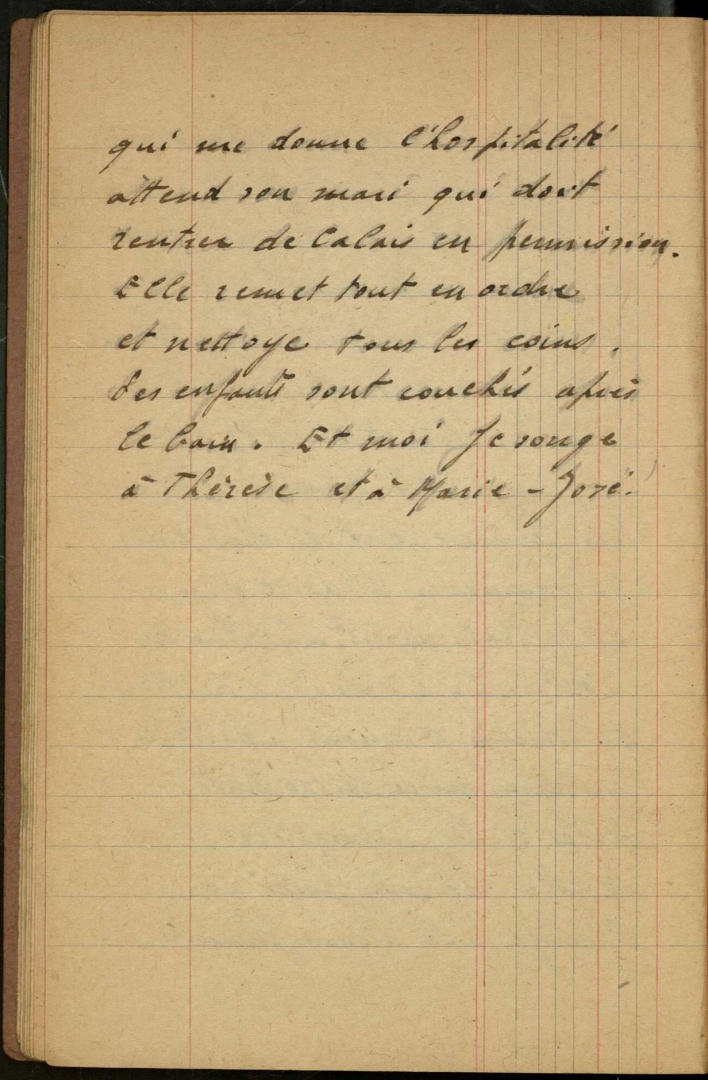 qui me donne l'hospitalité
attend son mari qui doit
rentrer de Calais en permission.
Elle remet tout en ordre
et nettoye tous les coins.
Les enfants sont couchés après
le bain. Et moi je songe
à Thérèse et à Marie-José.